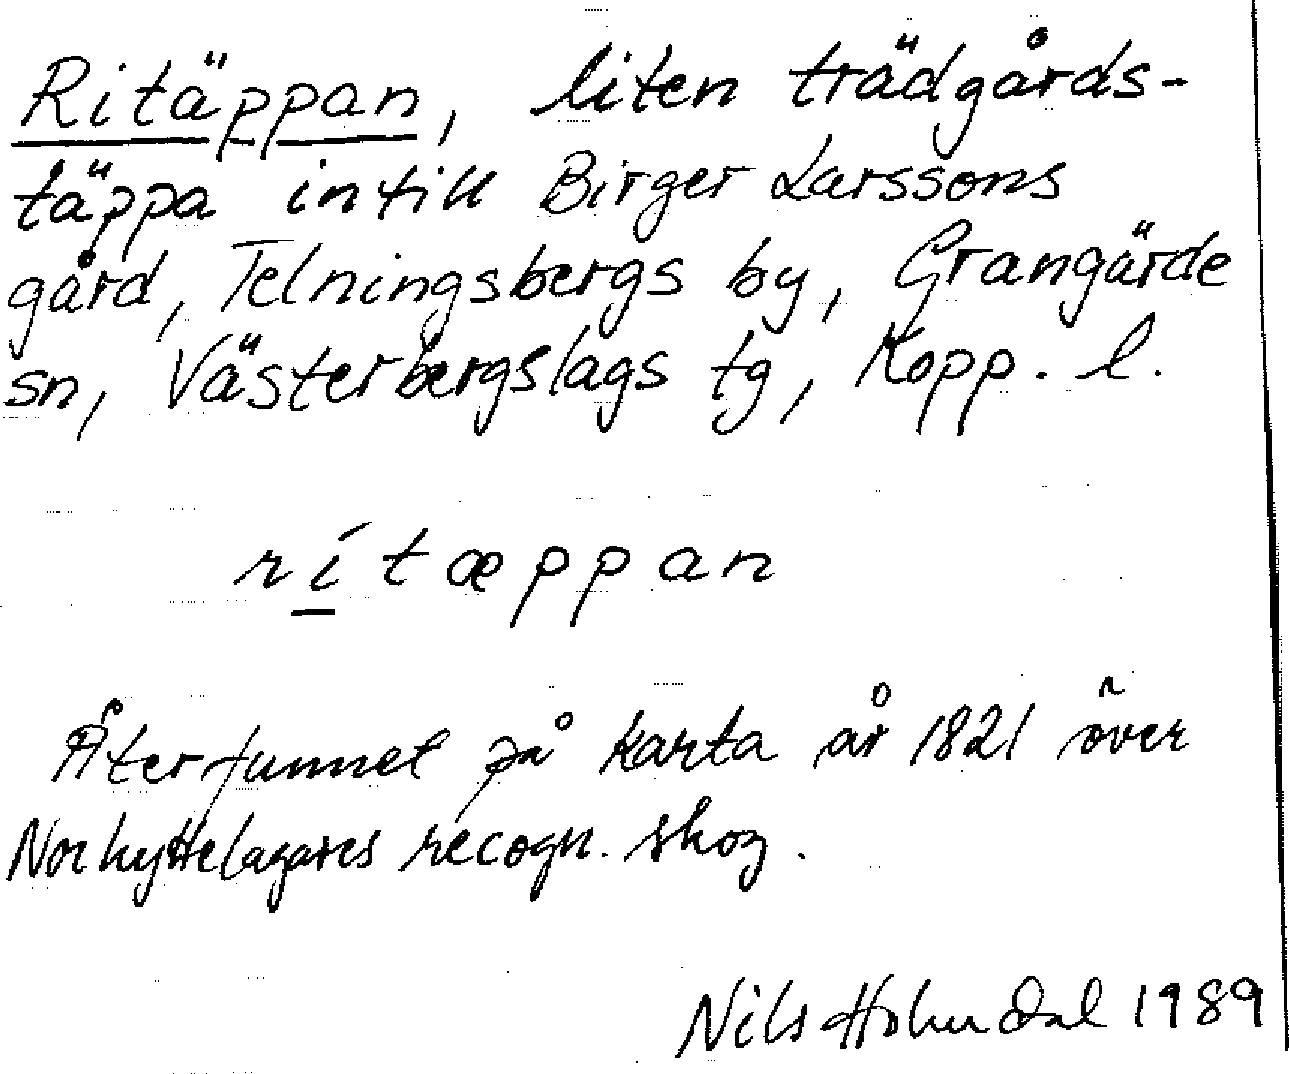 Ritäppan, liten trädgårds-
täppa intill Birger Larssons
gård, Telningsbergs by, Grangärde
sn, Västerbergslags tg, Kopp. l.
rítæppan
Återfunnet på karta år 1821 över
Norhyttelagares recogn. skog.
Nils Holmdal 1989